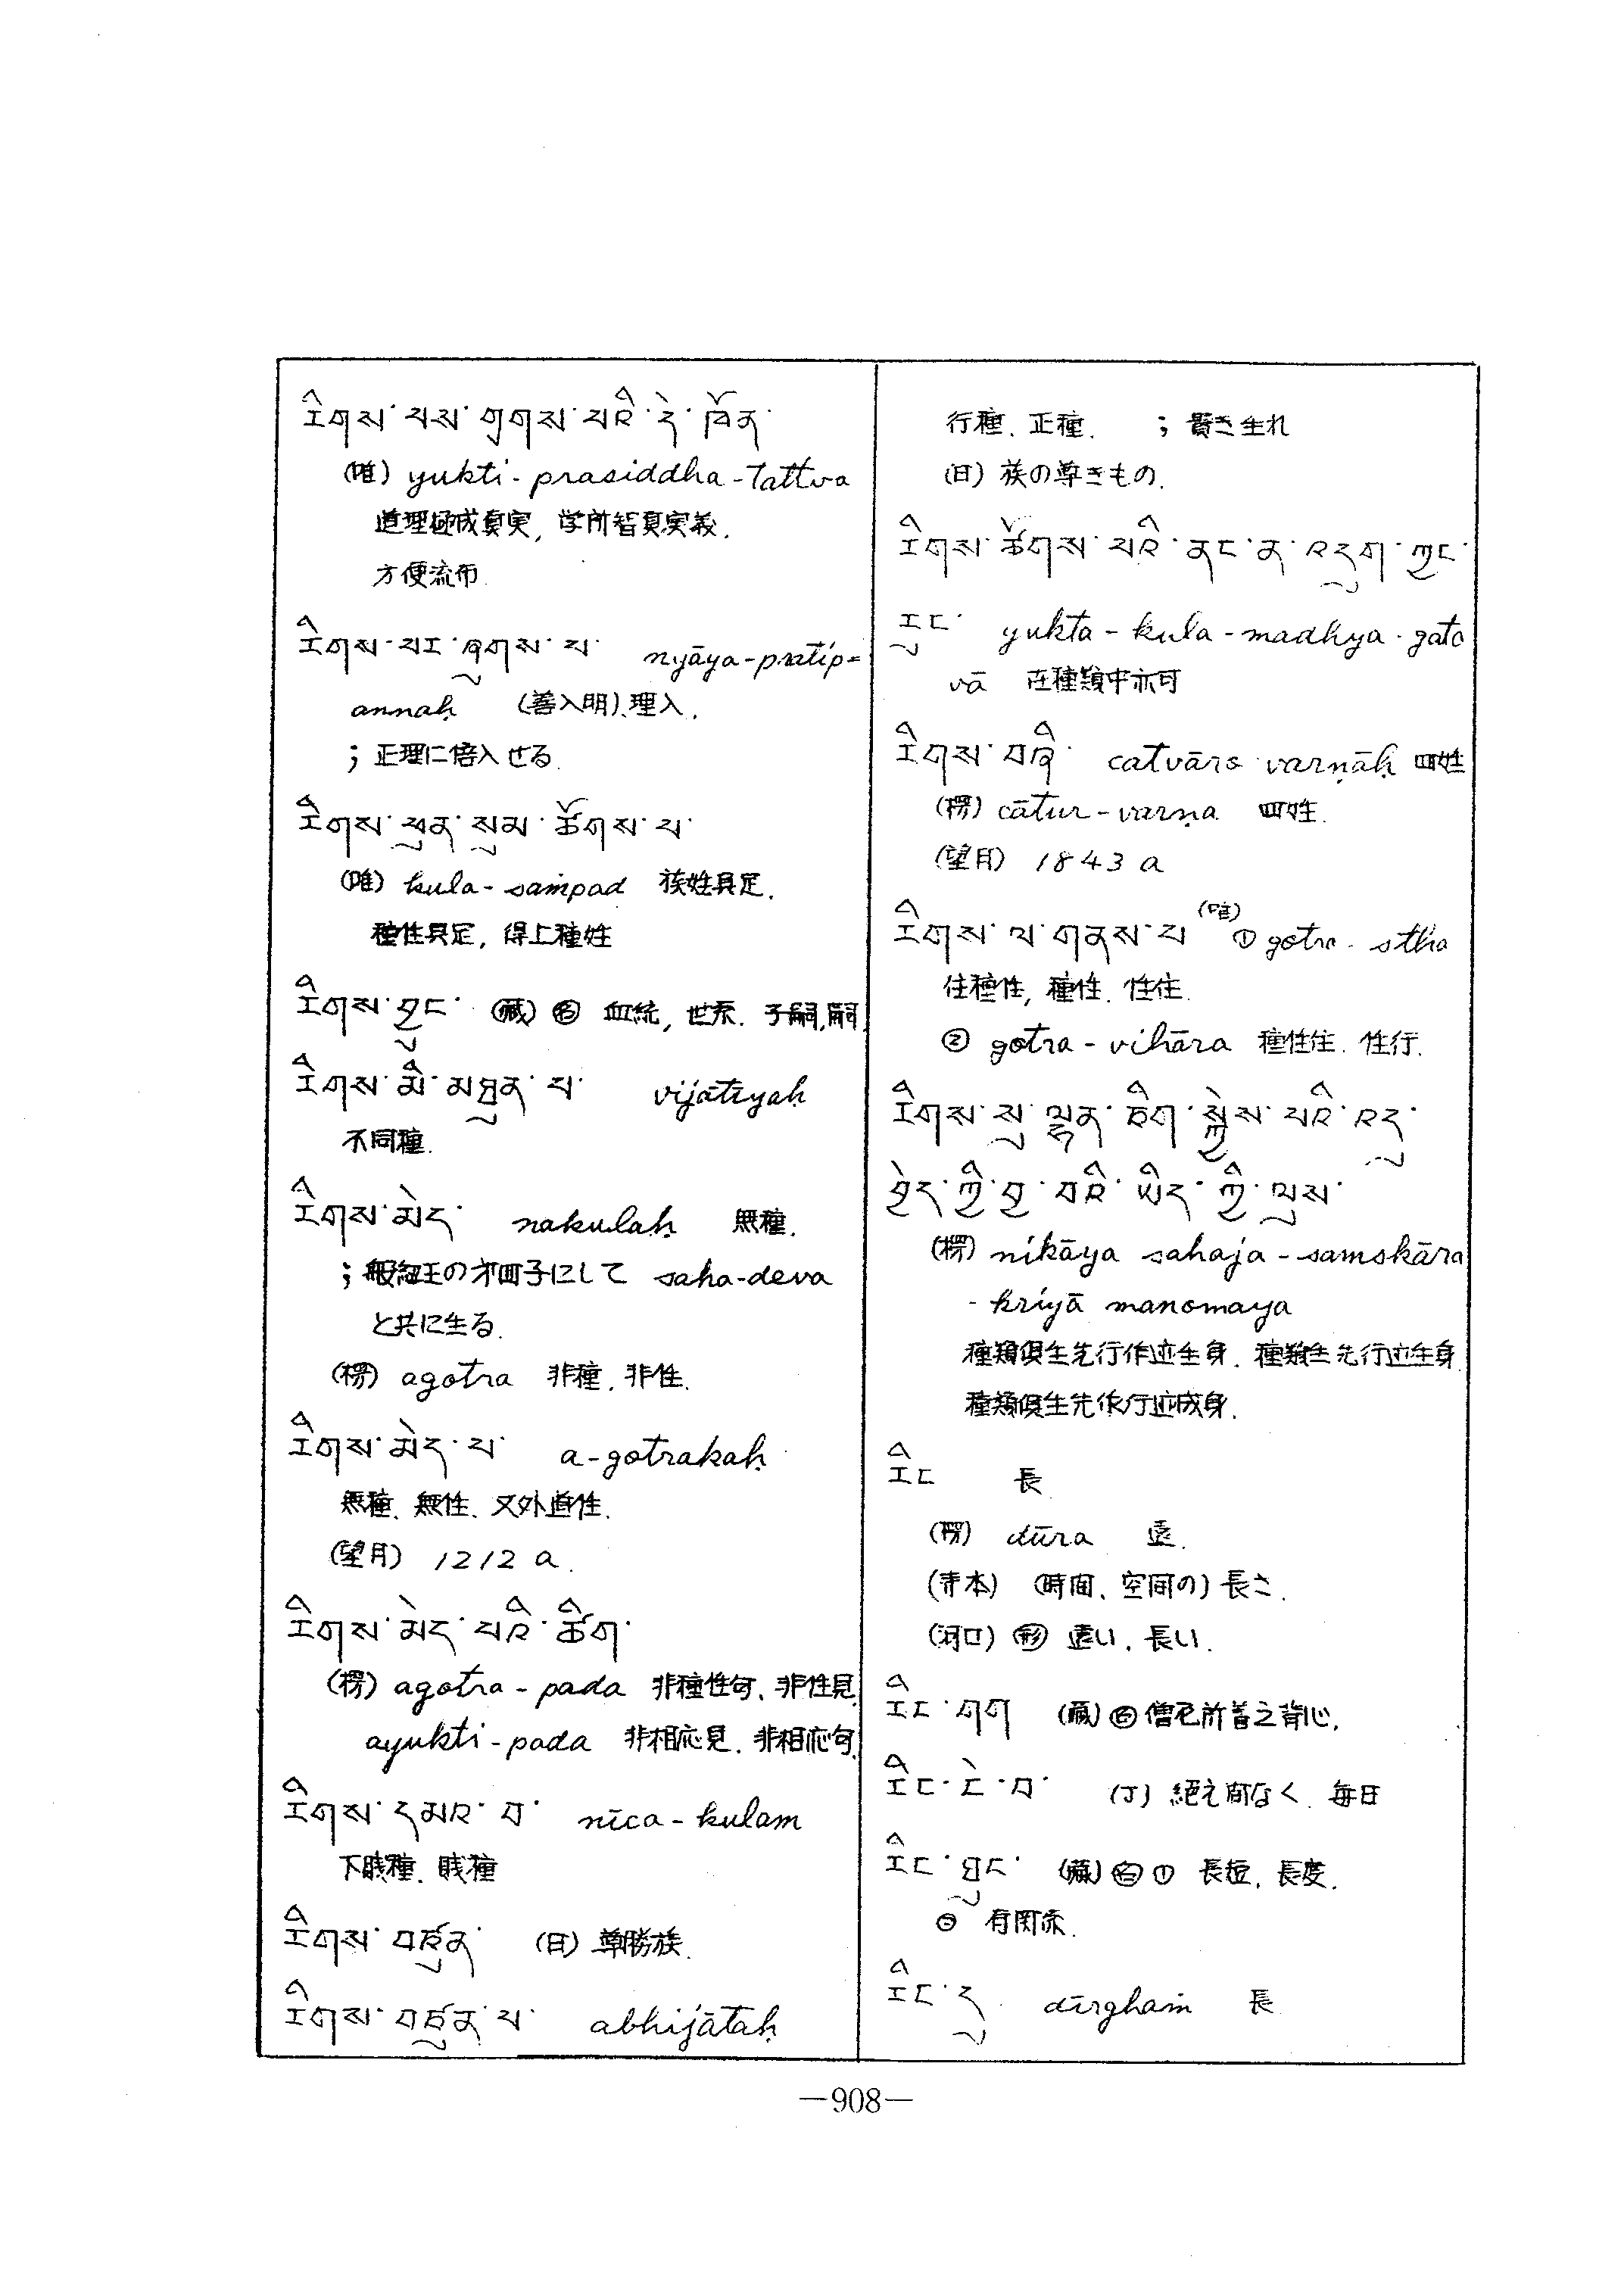 རིགས་པས་གྲགས་པའི་དེ་ཁོ་ན་
(唯) yukti-prasiddha-tattva
道理極成真実, 学所智真実義.
方便流布.
རིགས་པར་ཞུགས་པ་ nyāya-pratip=
annaḥ (善入明)、理入.
; 正理に倍入せる.
རིགས་ཕུན་སུམ་ཚོགས་པ་
(唯) kula-saṁpad 族姓具足.
種性具足, 得上種姓
རིགས་བྱུང་ (蔵) 名 血統, 世系. 子嗣,嗣.
རིགས་མི་མཐུན་པ་ vijātīyaḥ
不同種.
རིགས་མེད་ nakulaḥ 無種.
; 般紐王の才四子にして saha-deva
と共に生る.
(楞) agotra 非種. 非性.
རིགས་མེད་པ་ a-gotrakaḥ
無種、無性、又外道性.
(望月) 1212 a.
རིགས་མེད་པའི་ཚིག་
(楞) agotra-pada 非種性句、非性見.
ayukti-pada 非相応見. 非相応句.
རིགས་དམའ་བ་ nīca-kulam
下賎種. 賎種
རིགས་བཙུན་ (日) 尊勝族.
རིགས་བཙུན་པ་ abhijātaḥ
行種、正種. ; 貴き生れ
(日) 族の尊きもの.
རིགས་ཚོགས་པའི་ནང་ན་འདུག་ཀྱང་
རུང་ yukta-kula-madhya-gato
vā 在種類中亦可
རིགས་བཞི་ catvāro varṇāḥ 四姓
(楞) cātur-varṇa 四姓.
(望月) 1843 a
རིགས་ལ་གནས་པ (唯) ① gotra-stha
住種性, 種性. 性住.
② gotra-vihāra 種性住. 性行.
རིགས་སུ་ལྷན་ཅིག་སྐྱེས་པའི་འདུ་
བྱེད་ཀྱི་བྱ་བའི་ཡིད་ཀྱི་ལུས་
(楞) nikāya sahaja-samskāra
-kriyā manomaya
種類倶生先行作迹生身. 種類生先行迹生身.
種類倶生先依行迹成身.
རིང 長
(楞) dūra 遠.
(寺本) (時間、空間の) 長さ.
(河口) 形 遠い. 長い.
རིང་གག (蔵) 名 僧尼所着之背心.
རིང་ངེ་བ་ (丁) 絶え間なく. 毎日
རིང་ཐུང་ (蔵) 名 ① 長短. 長度.
㊁ 有関系.
རིང་དུ dīrghaṁ 長
—908—